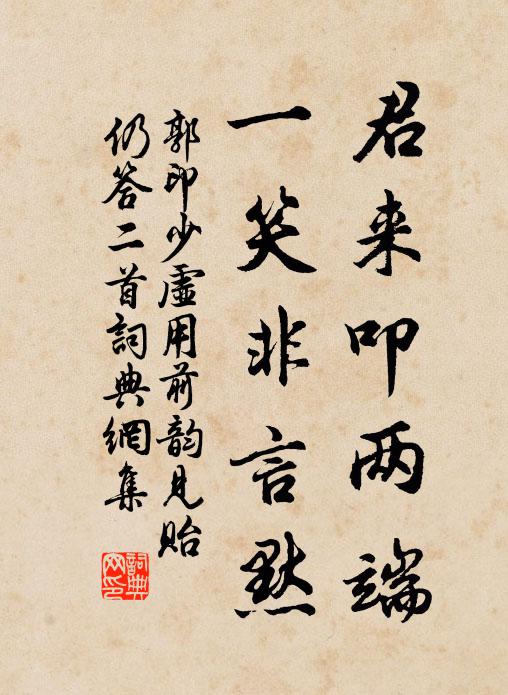 君来叩两端
一笑非言默
郭印少虚用前韵见贻
仍答二首詞典網集
詞典
网印